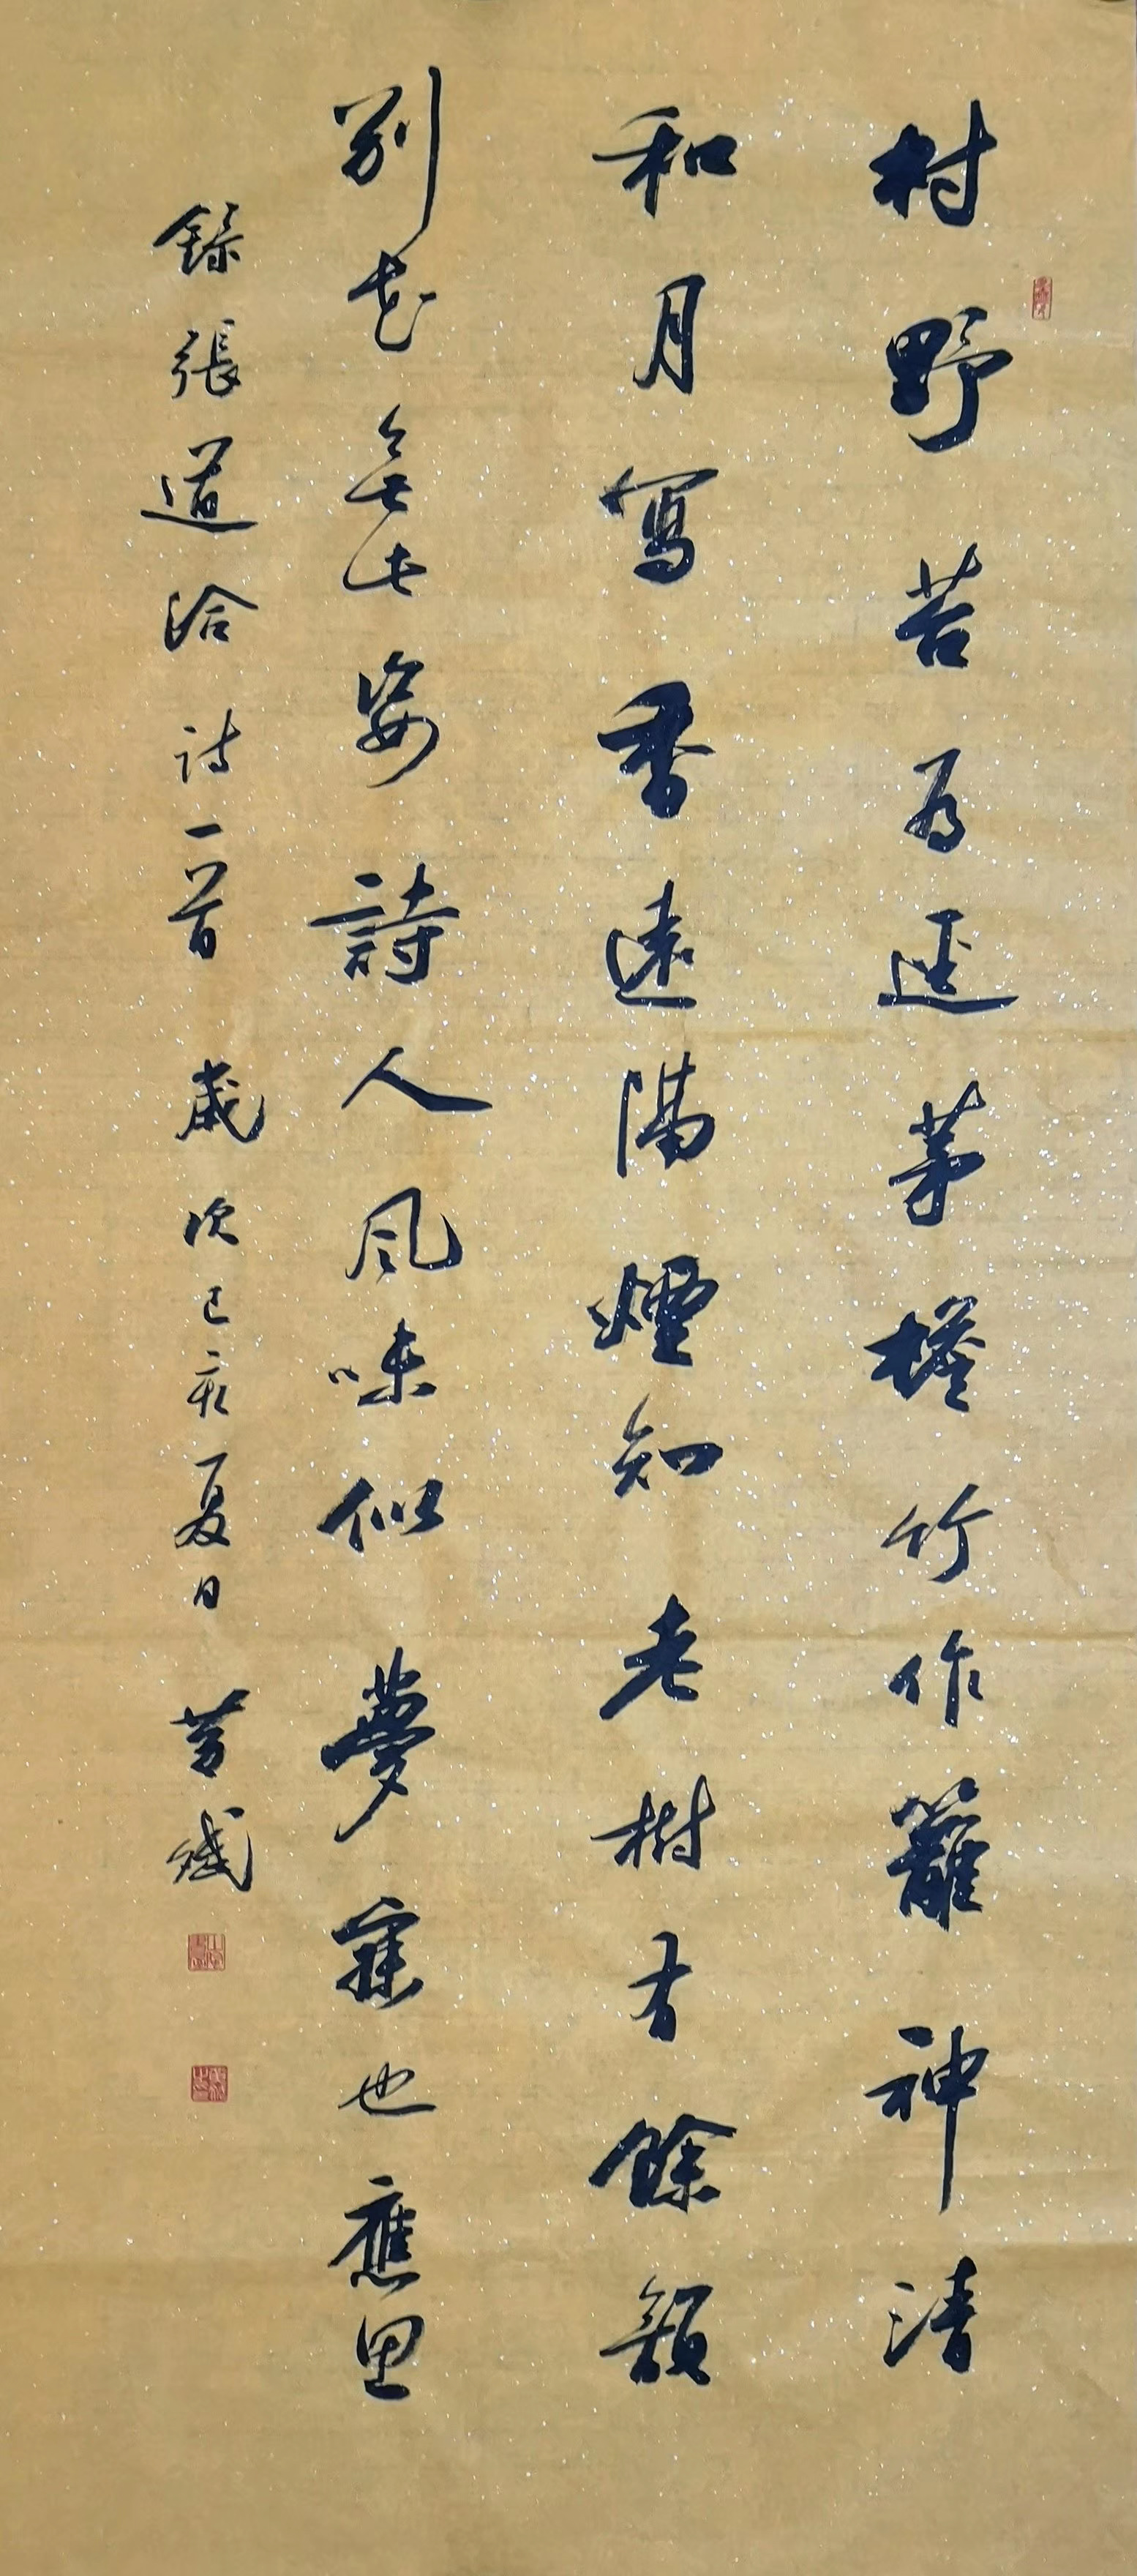 村野苔为迳茅檐竹作籬神清
和月寫香遠隔煙知老樹有餘韻
别花無此姿詩人風味似夢寐也應思
錄張道洽詩一首 歲次己亥夏日